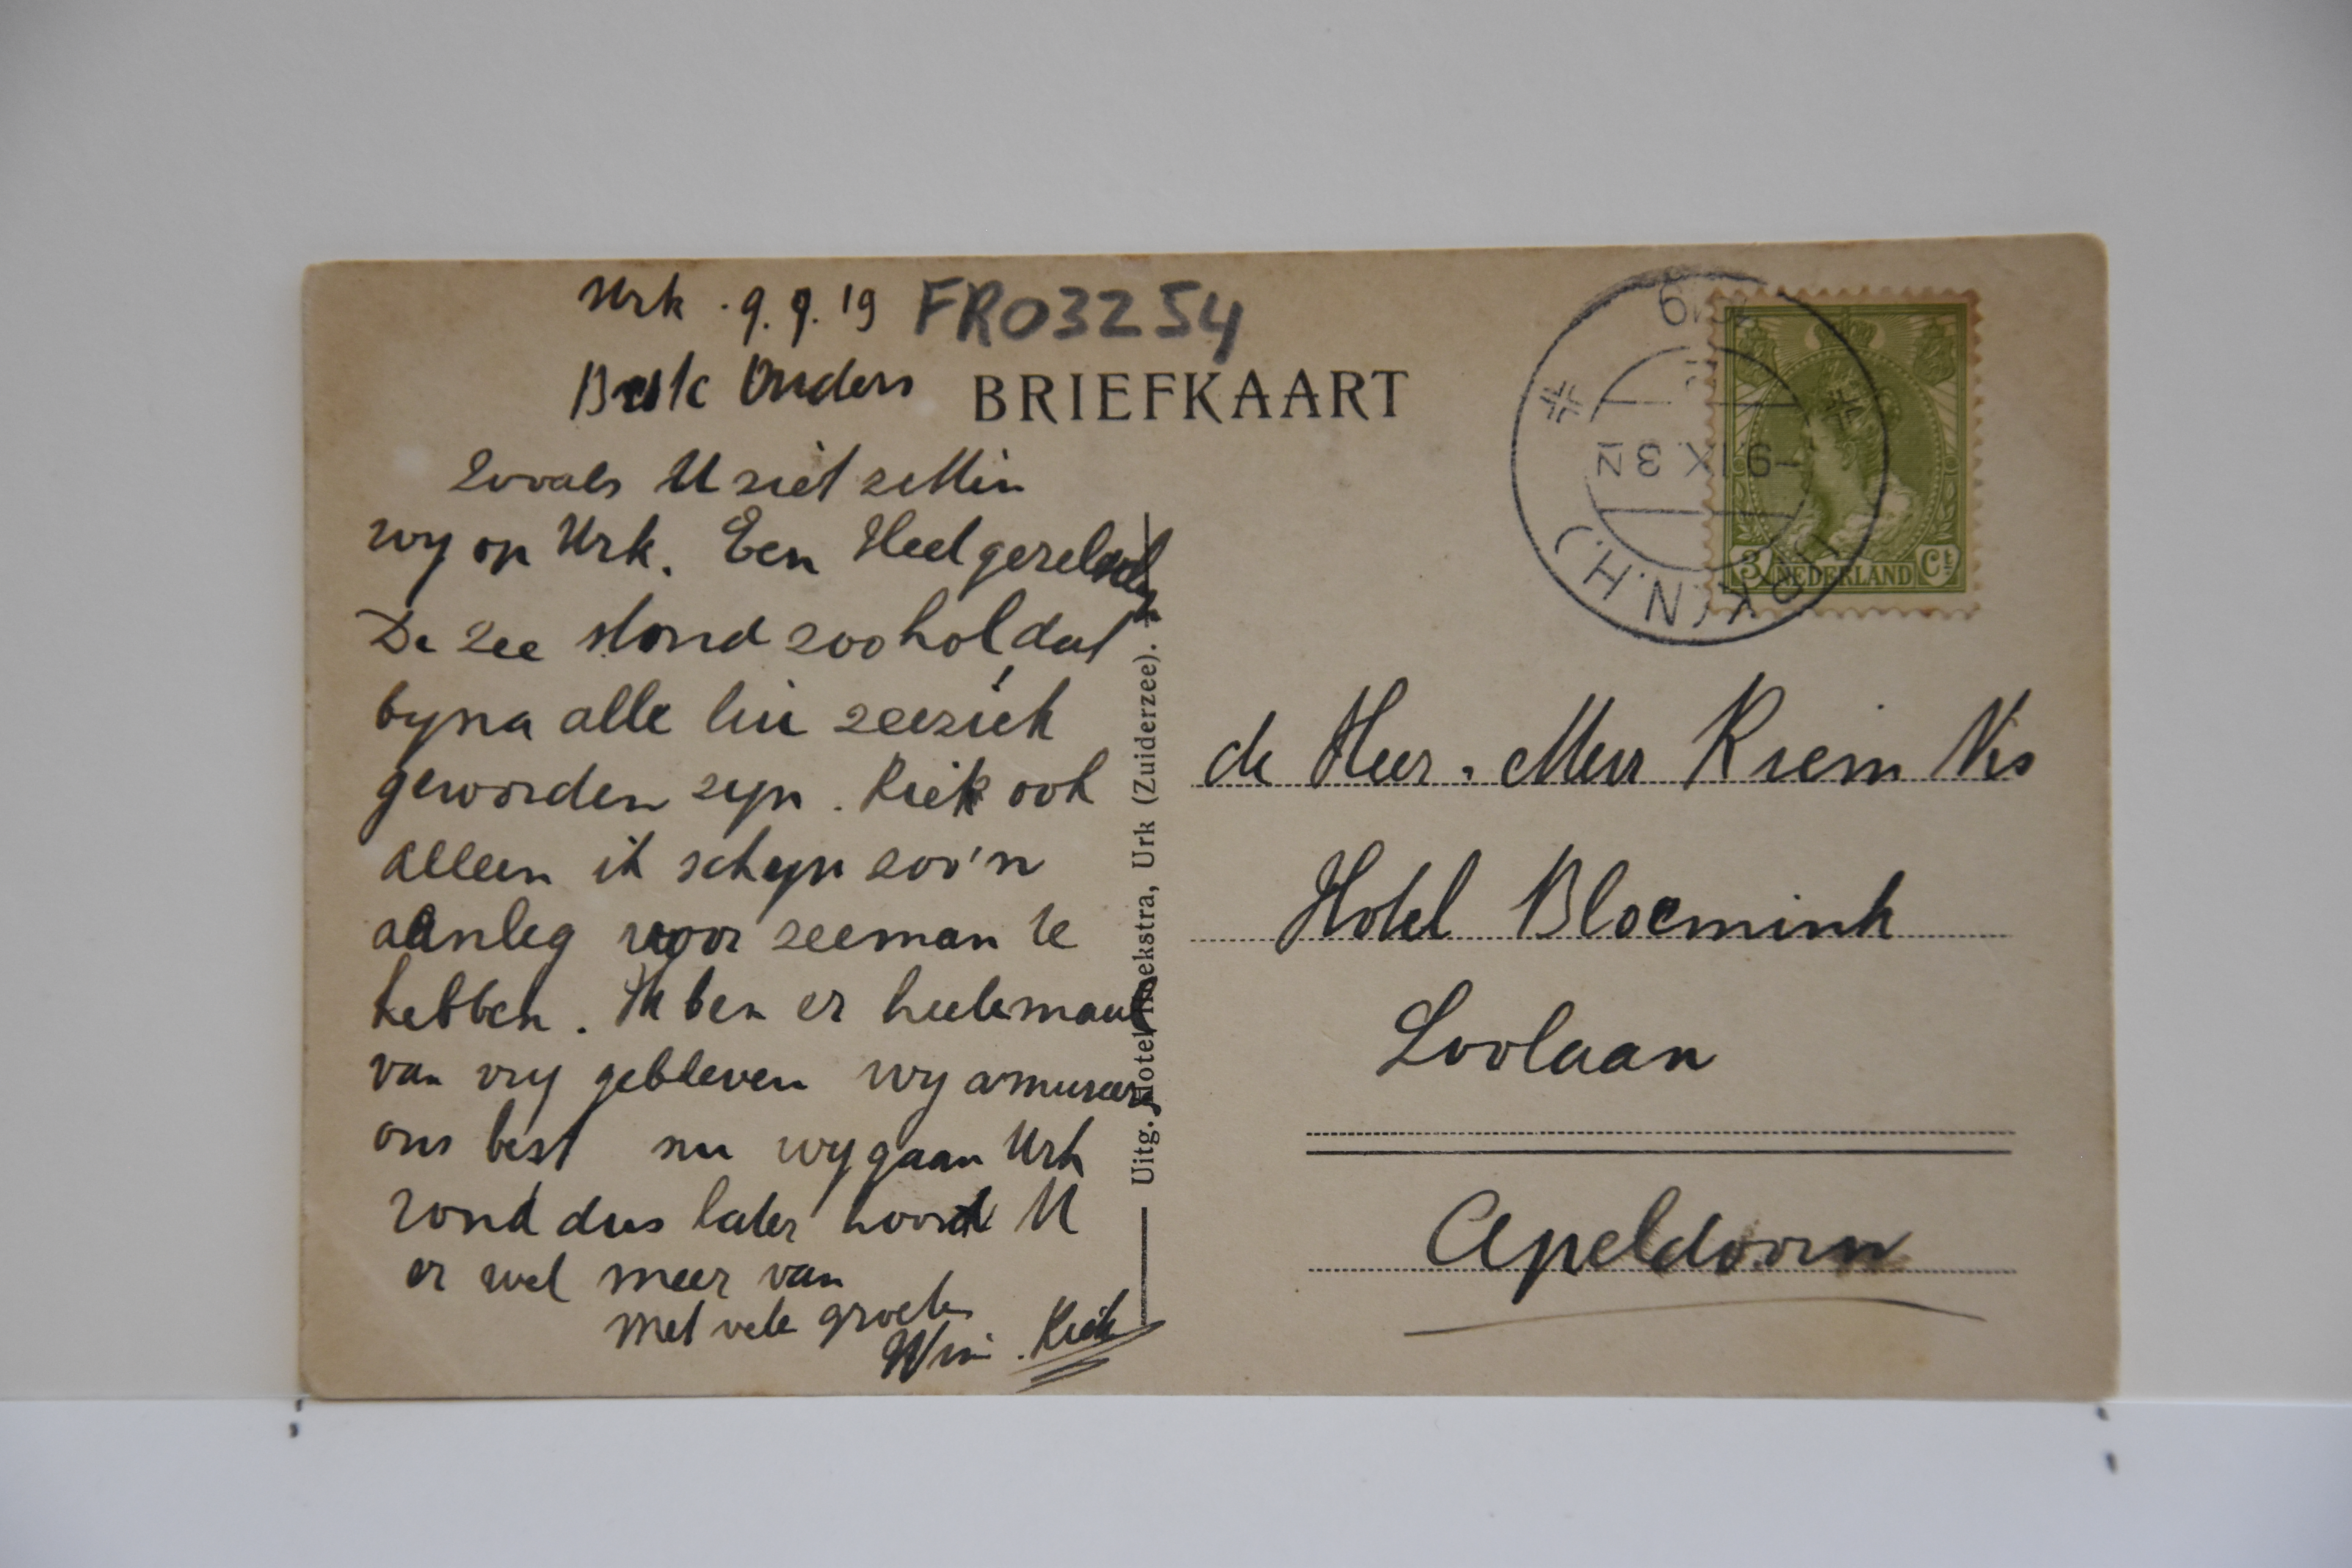 Urk . 9. 9. 19
FR03254
Beste Ouders
BRIEFKAART
Zooals U ziet zitten
wy op Urk. Een Heel gereis
De zee stond zoo hol, dat
byna alle lui zeeziek
geworden zyn. Riek ook
alleen ik schyn zoo'n
aanleg voor zeeman te
hebben. Ik ben er heelemaal
van vry gebleven wy amuseeren
ons best nu wy gaan Urk
rond dus later hoord U
er wel meer van
Met vele groeten
Wim. Riek
Uitg. Hotel Hoekstra, Urk (Zuiderzee).
1919
-9.IX 3N
URK (N.H.)
3 NEDERLAND Ct
de Heer. Mevr Kriem Vis
Hotel Bloemink
Loolaan
Apeldoorn